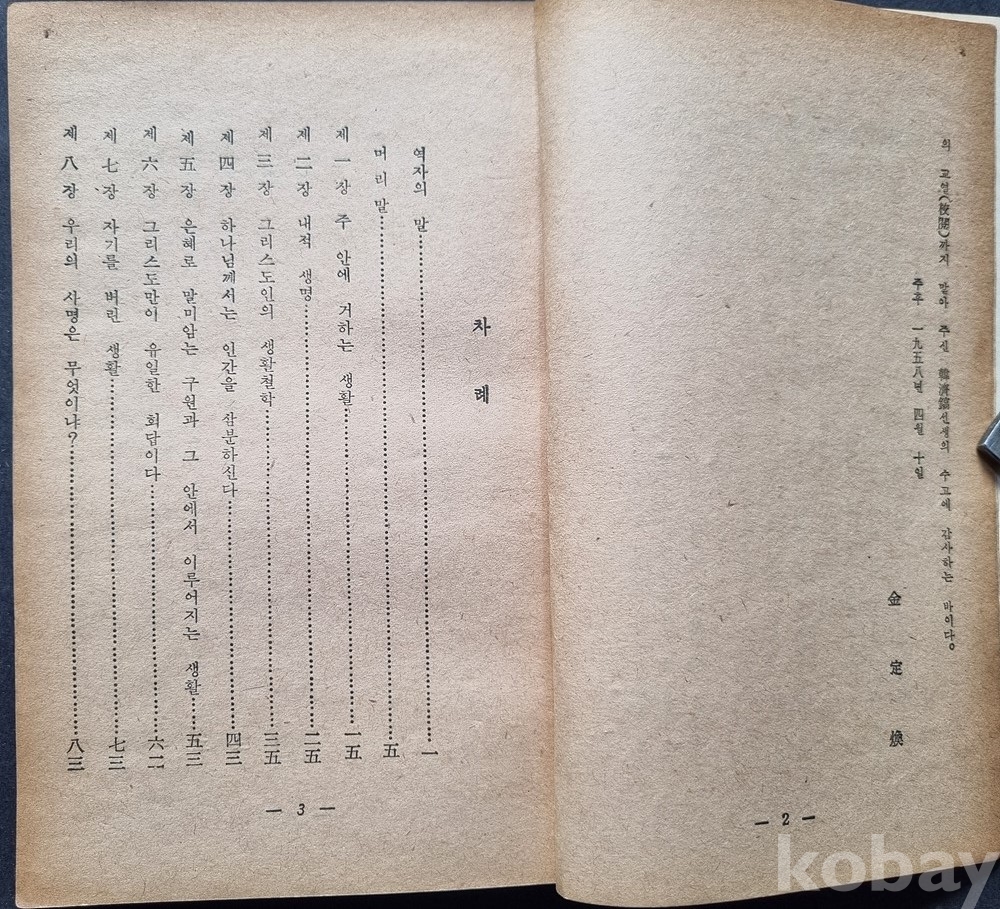 의 교열(校閱)까지 맡아 주신 韓濟鎬선생의 수고에 감사하는 바이다。
주후 一九五八년 四월 十일
金定煥
— 2 —
차례
역자의 말 一
머리말 五
제一장 주 안에 거하는 생활 一五
제二장 내적 생명 二五
제三장 그리스도인의 생활철학 三五
제四장 하나님께서는 인간을 삼분하신다 四三
제五장 은혜로 말미암는 구원과 그 안에서 이루어지는 생활 五三
제六장 그리스도만이 유일한 회답이다 六二
제七장 자기를 버린 생활 七三
제八장 우리의 사명은 무엇이냐? 八三
— 3 —
kobay